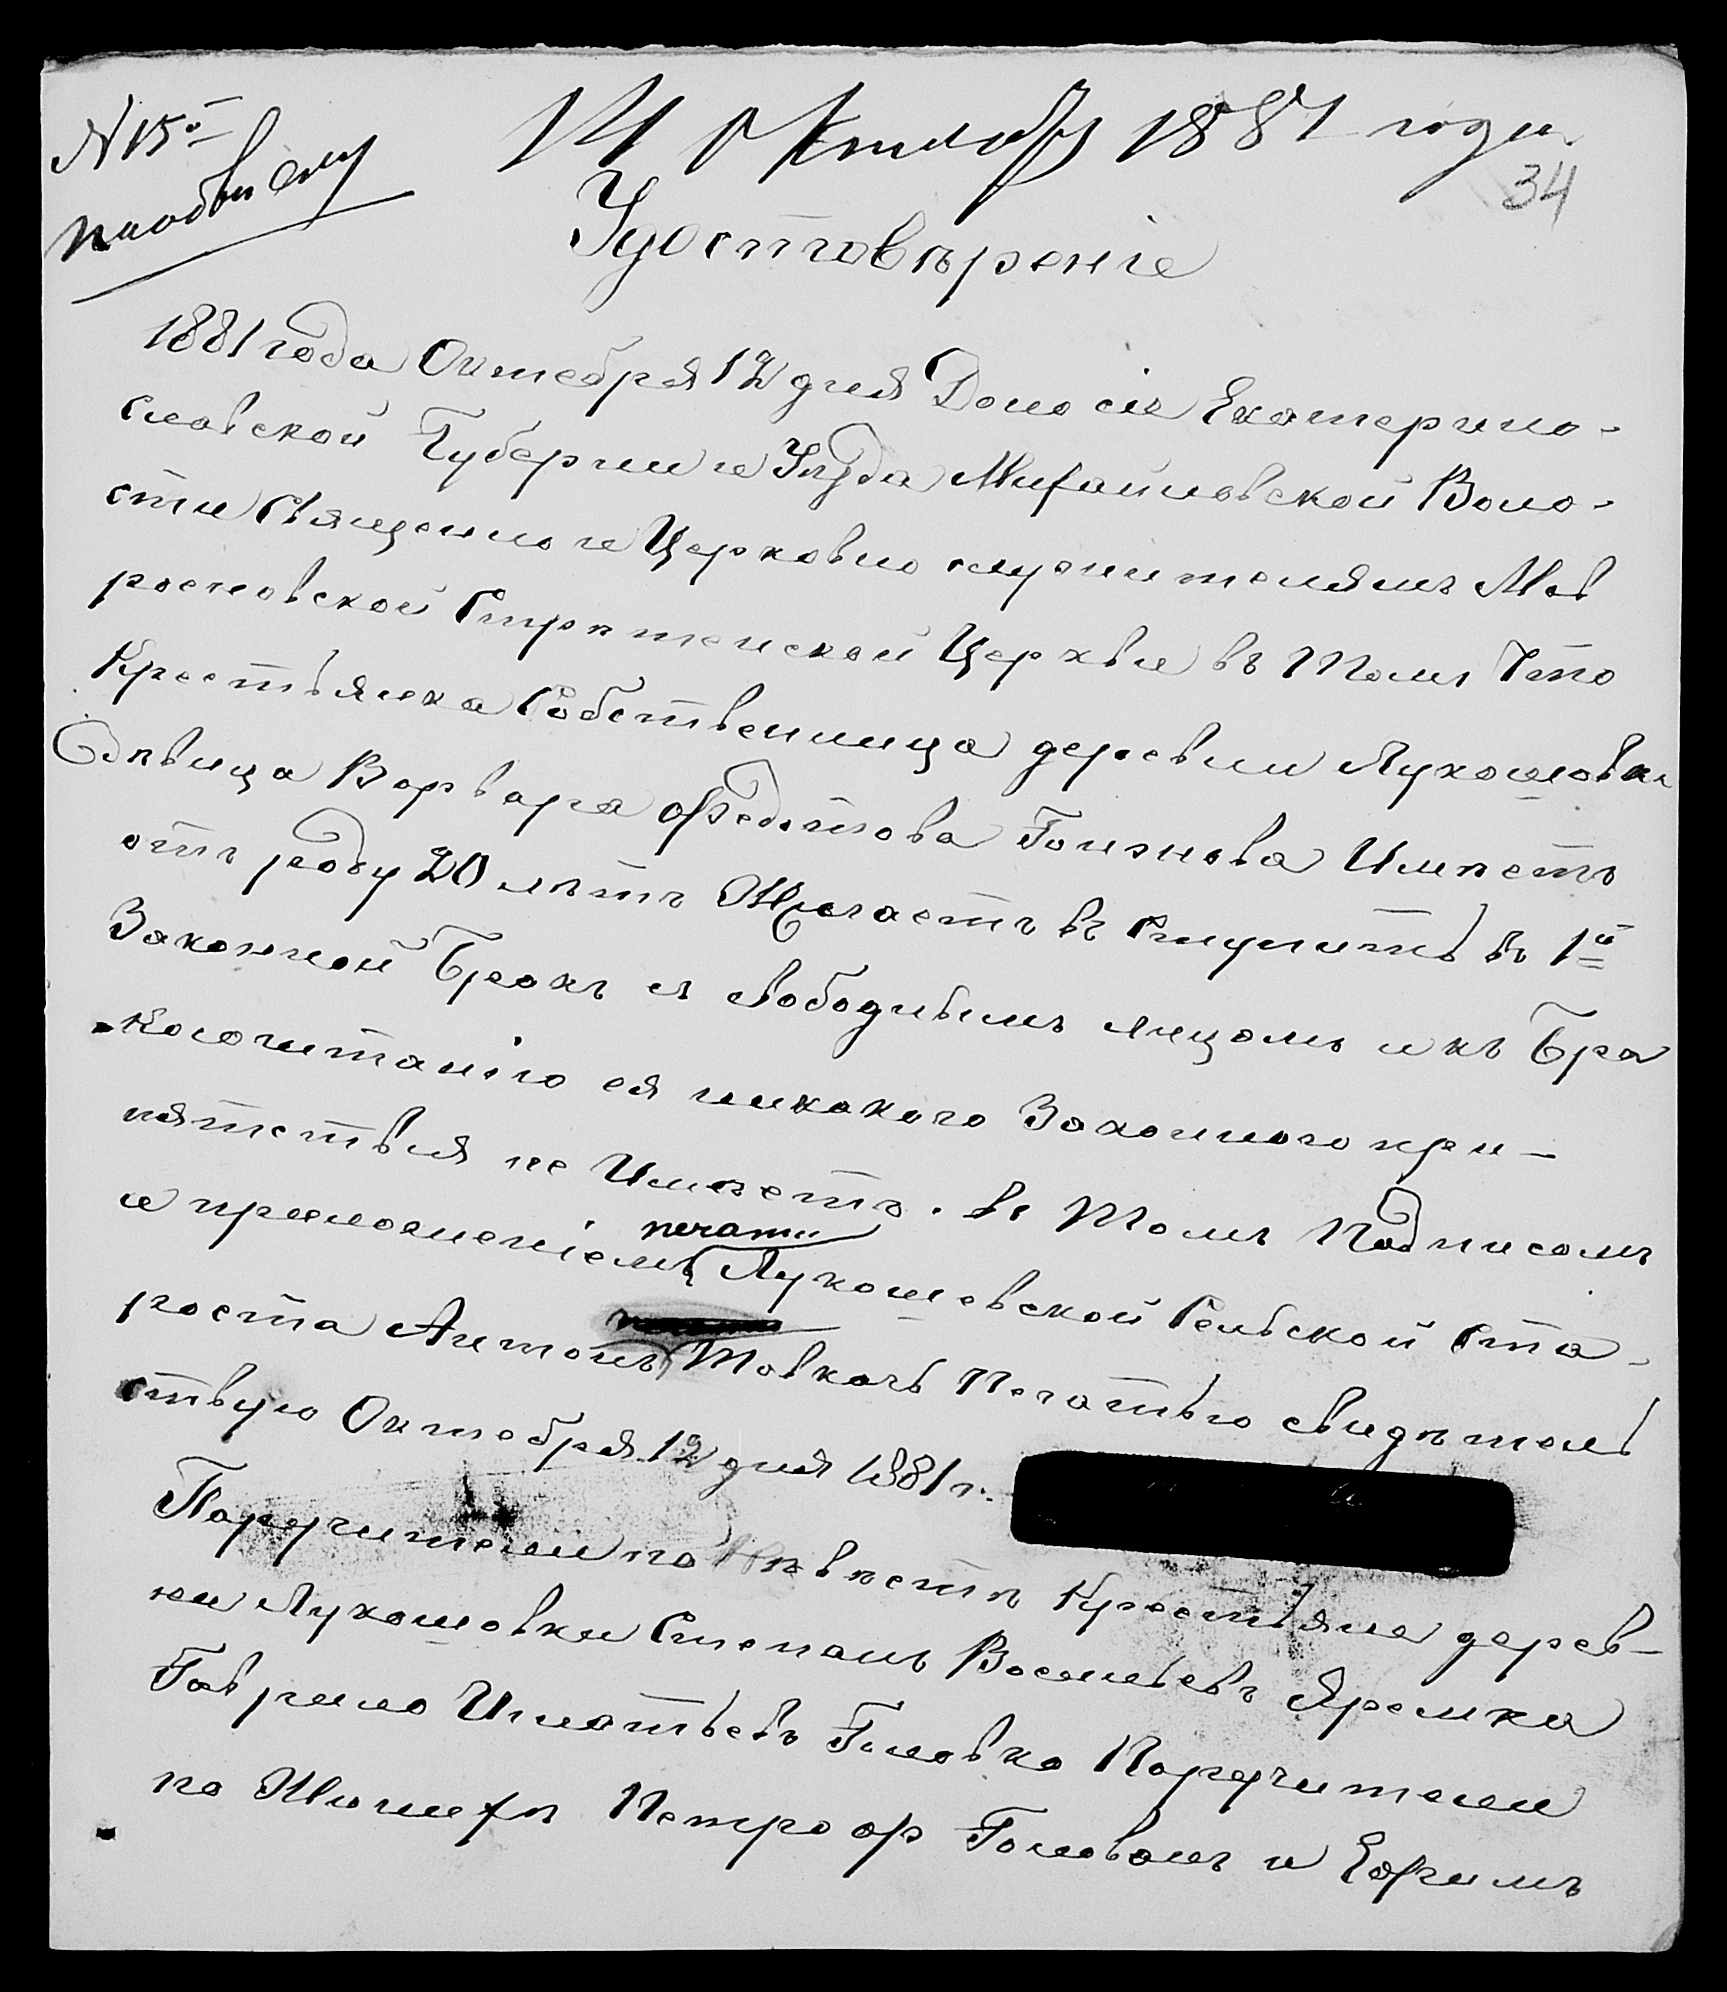 N 15й
по обыску
14 Октября 1881 года
34
Удостовѣреніе
1881 года Октебря 12 дня Дано сіе Екатерино-
славской Губернии и Уѣзда Михайловской Воло-
сти Священо и Церковно служителямъ Мав
росновской Стрѣтенской Церкви въ Томъ Что
Крестьянка Собственница деревни Лукошовки
Дѣвица Варвара Федотова Имѣетъ
отъ роду 20 лѣтъ Желаетъ въ Ступить въ 1й
Законной Бракъ съ свободнымъ лицомъ и къ Бра
косочитанію ея никакого Законного пре-
пятствия не Имѣетъ. въ Томъ Подписомъ
печати
и приложеніемъ Лукошевской Сельской Ста-
роста Антонъ Товкачь Печатью свидѣтель
ствую Октебря 12 дня 1881 г.
Поручители по Невѣстѣ Крестьяне дерев-
ни Лукошовки Степанъ Васильевъ Яремка
Гаврило Игнатьевъ Головко Поручители
по Женихѣ Петро ор Головань и Ефимъ